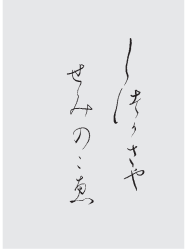 しづかさや
せみのこゑ